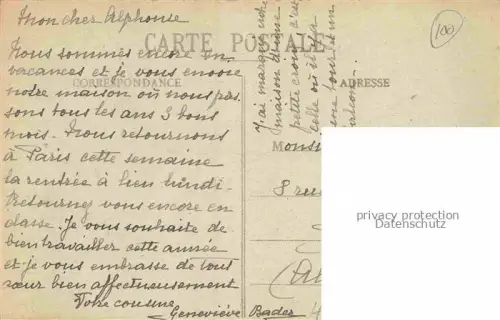 Mon cher Alphonse
CARTE POSTALE
CORRESPONDANCE
ADRESSE
Nous sommes encore en
vacances et je vous envoie
notre maison où nous pas
sons tous les ans 3 bons
mois. Nous retournons
à Paris cette semaine
la rentrée a lieu lundi.
Retournez vous encore en
classe. Je vous souhaite de
bien travailler cette année
et je vous embrasse de tout
cœur bien affectueusement
Votre cousine
Geneviève Bader
J'ai marqué notre
maison d'une
petite croix c'est
celle où il y a
une tourelle
100
Monsi
8 rue
privacy protection
Datenschutz